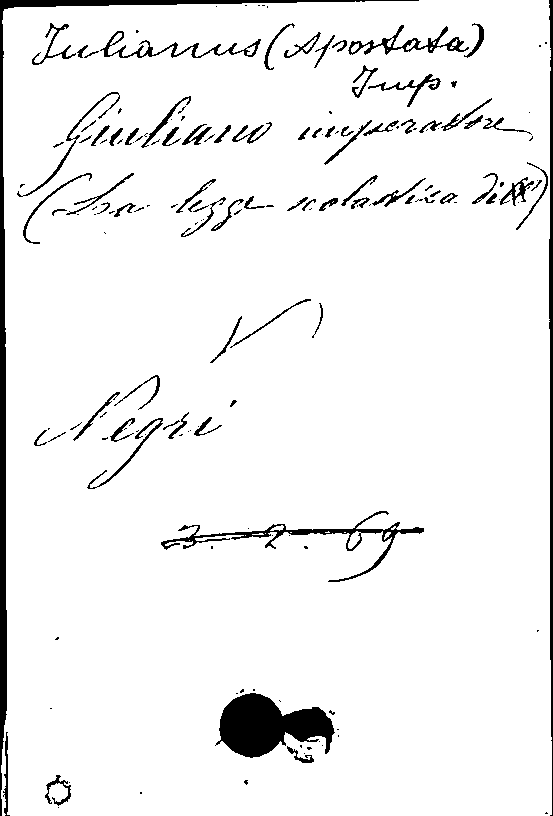 Julianus (Apostata)
Imp.
Giuliano imperatore
(La legge scolastica di)
V
Negri
3. 2. 69